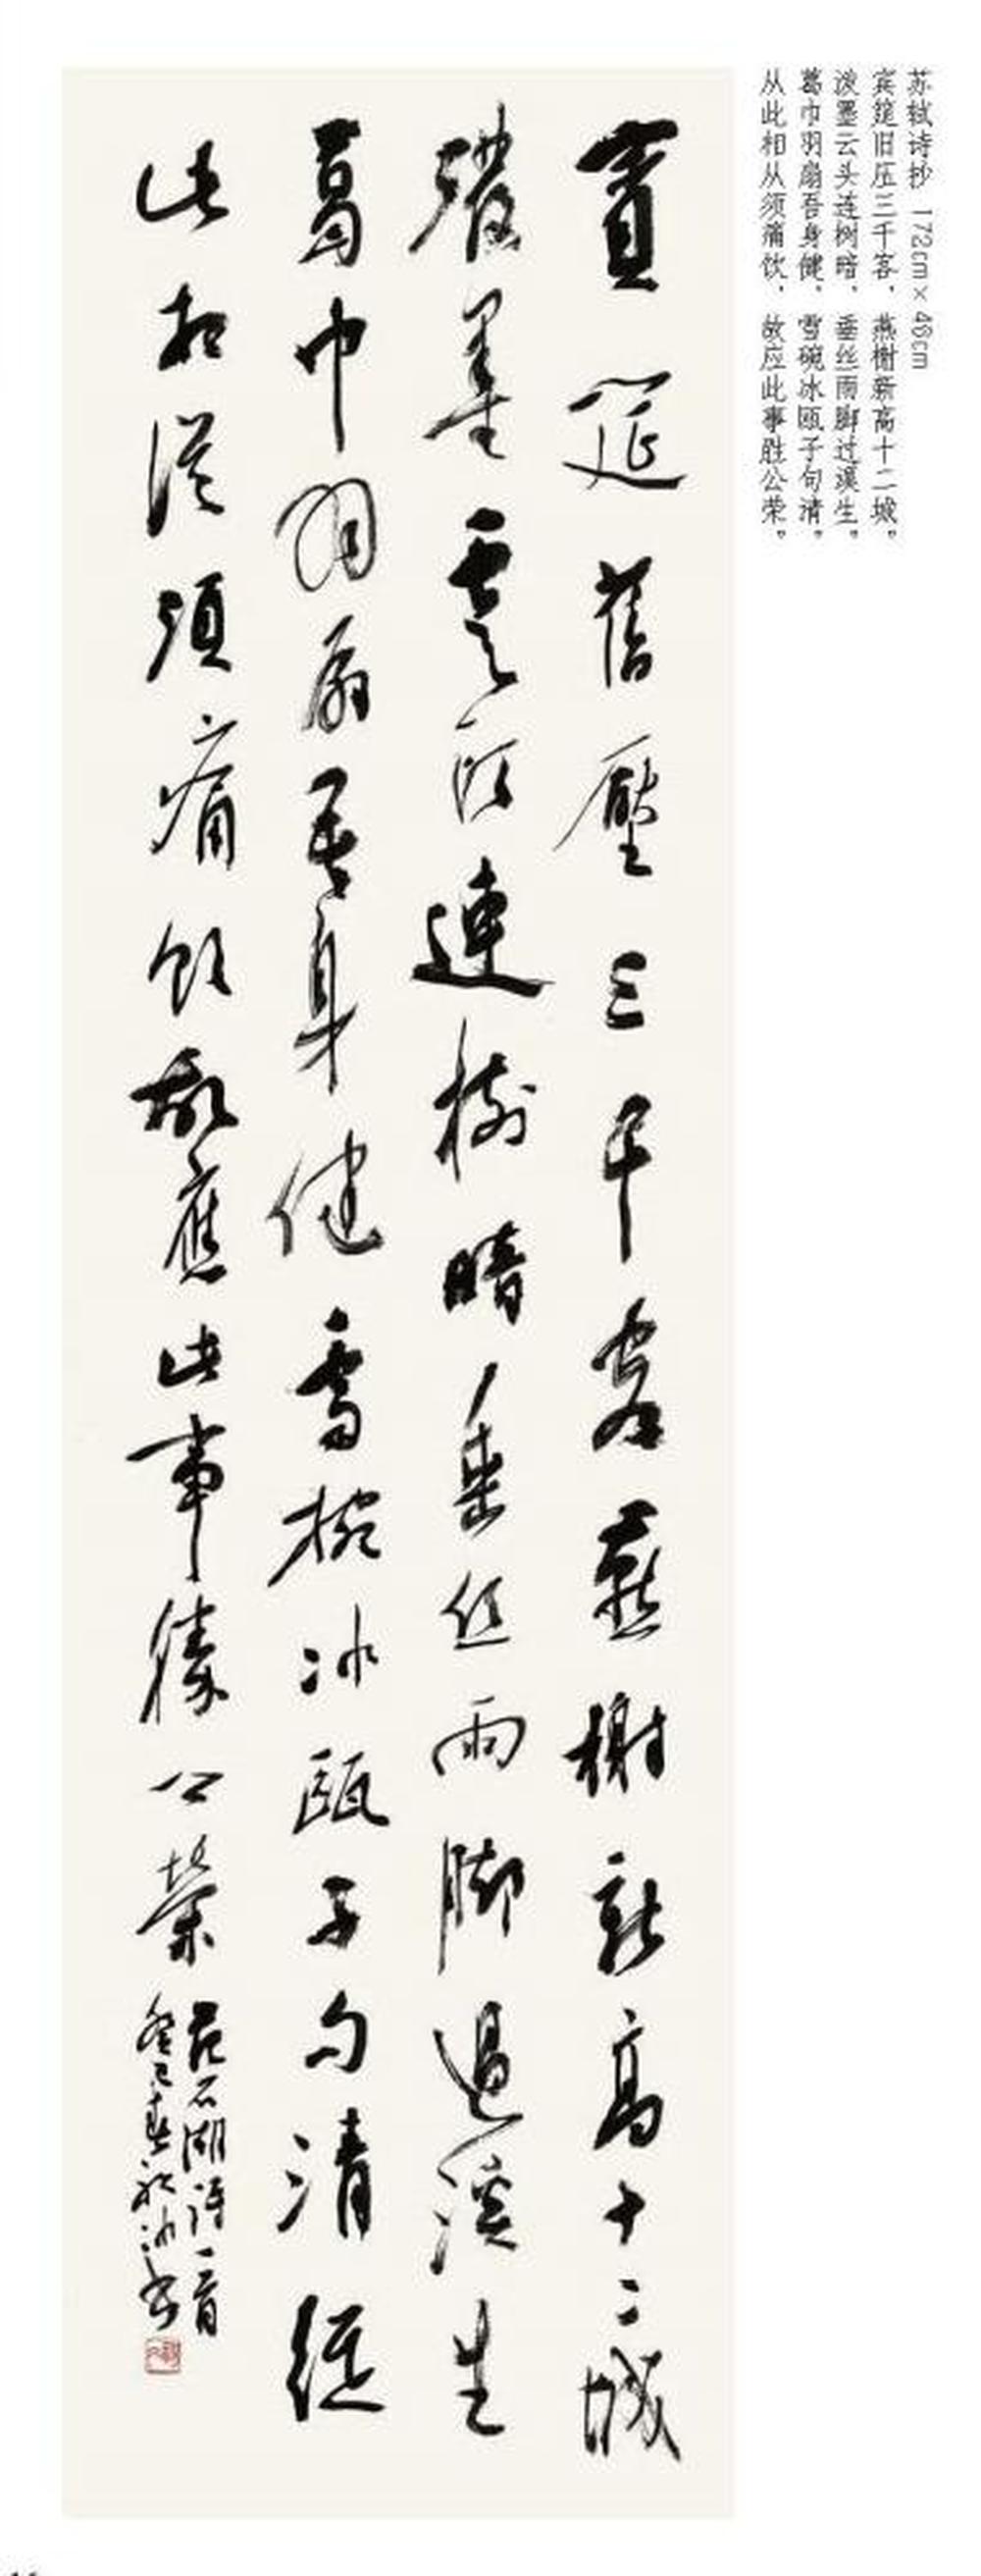 苏轼诗抄 172cm×48cm
宾筵旧压三千客，燕榭新高十二城。
泼墨云头连树暗，垂丝雨脚过溪生。
葛巾羽扇吾身健，雪碗冰瓯子句清。
从此相从须痛饮，故应此事胜公荣。
賓筵舊壓三千客燕榭新高十二城
潑墨雲頭連樹暗垂絲雨腳過溪生
葛巾羽扇吾身健雪椀冰甌子句清從
此相從須痛飲故應此事勝公榮
范石湖詩一首
癸巳春